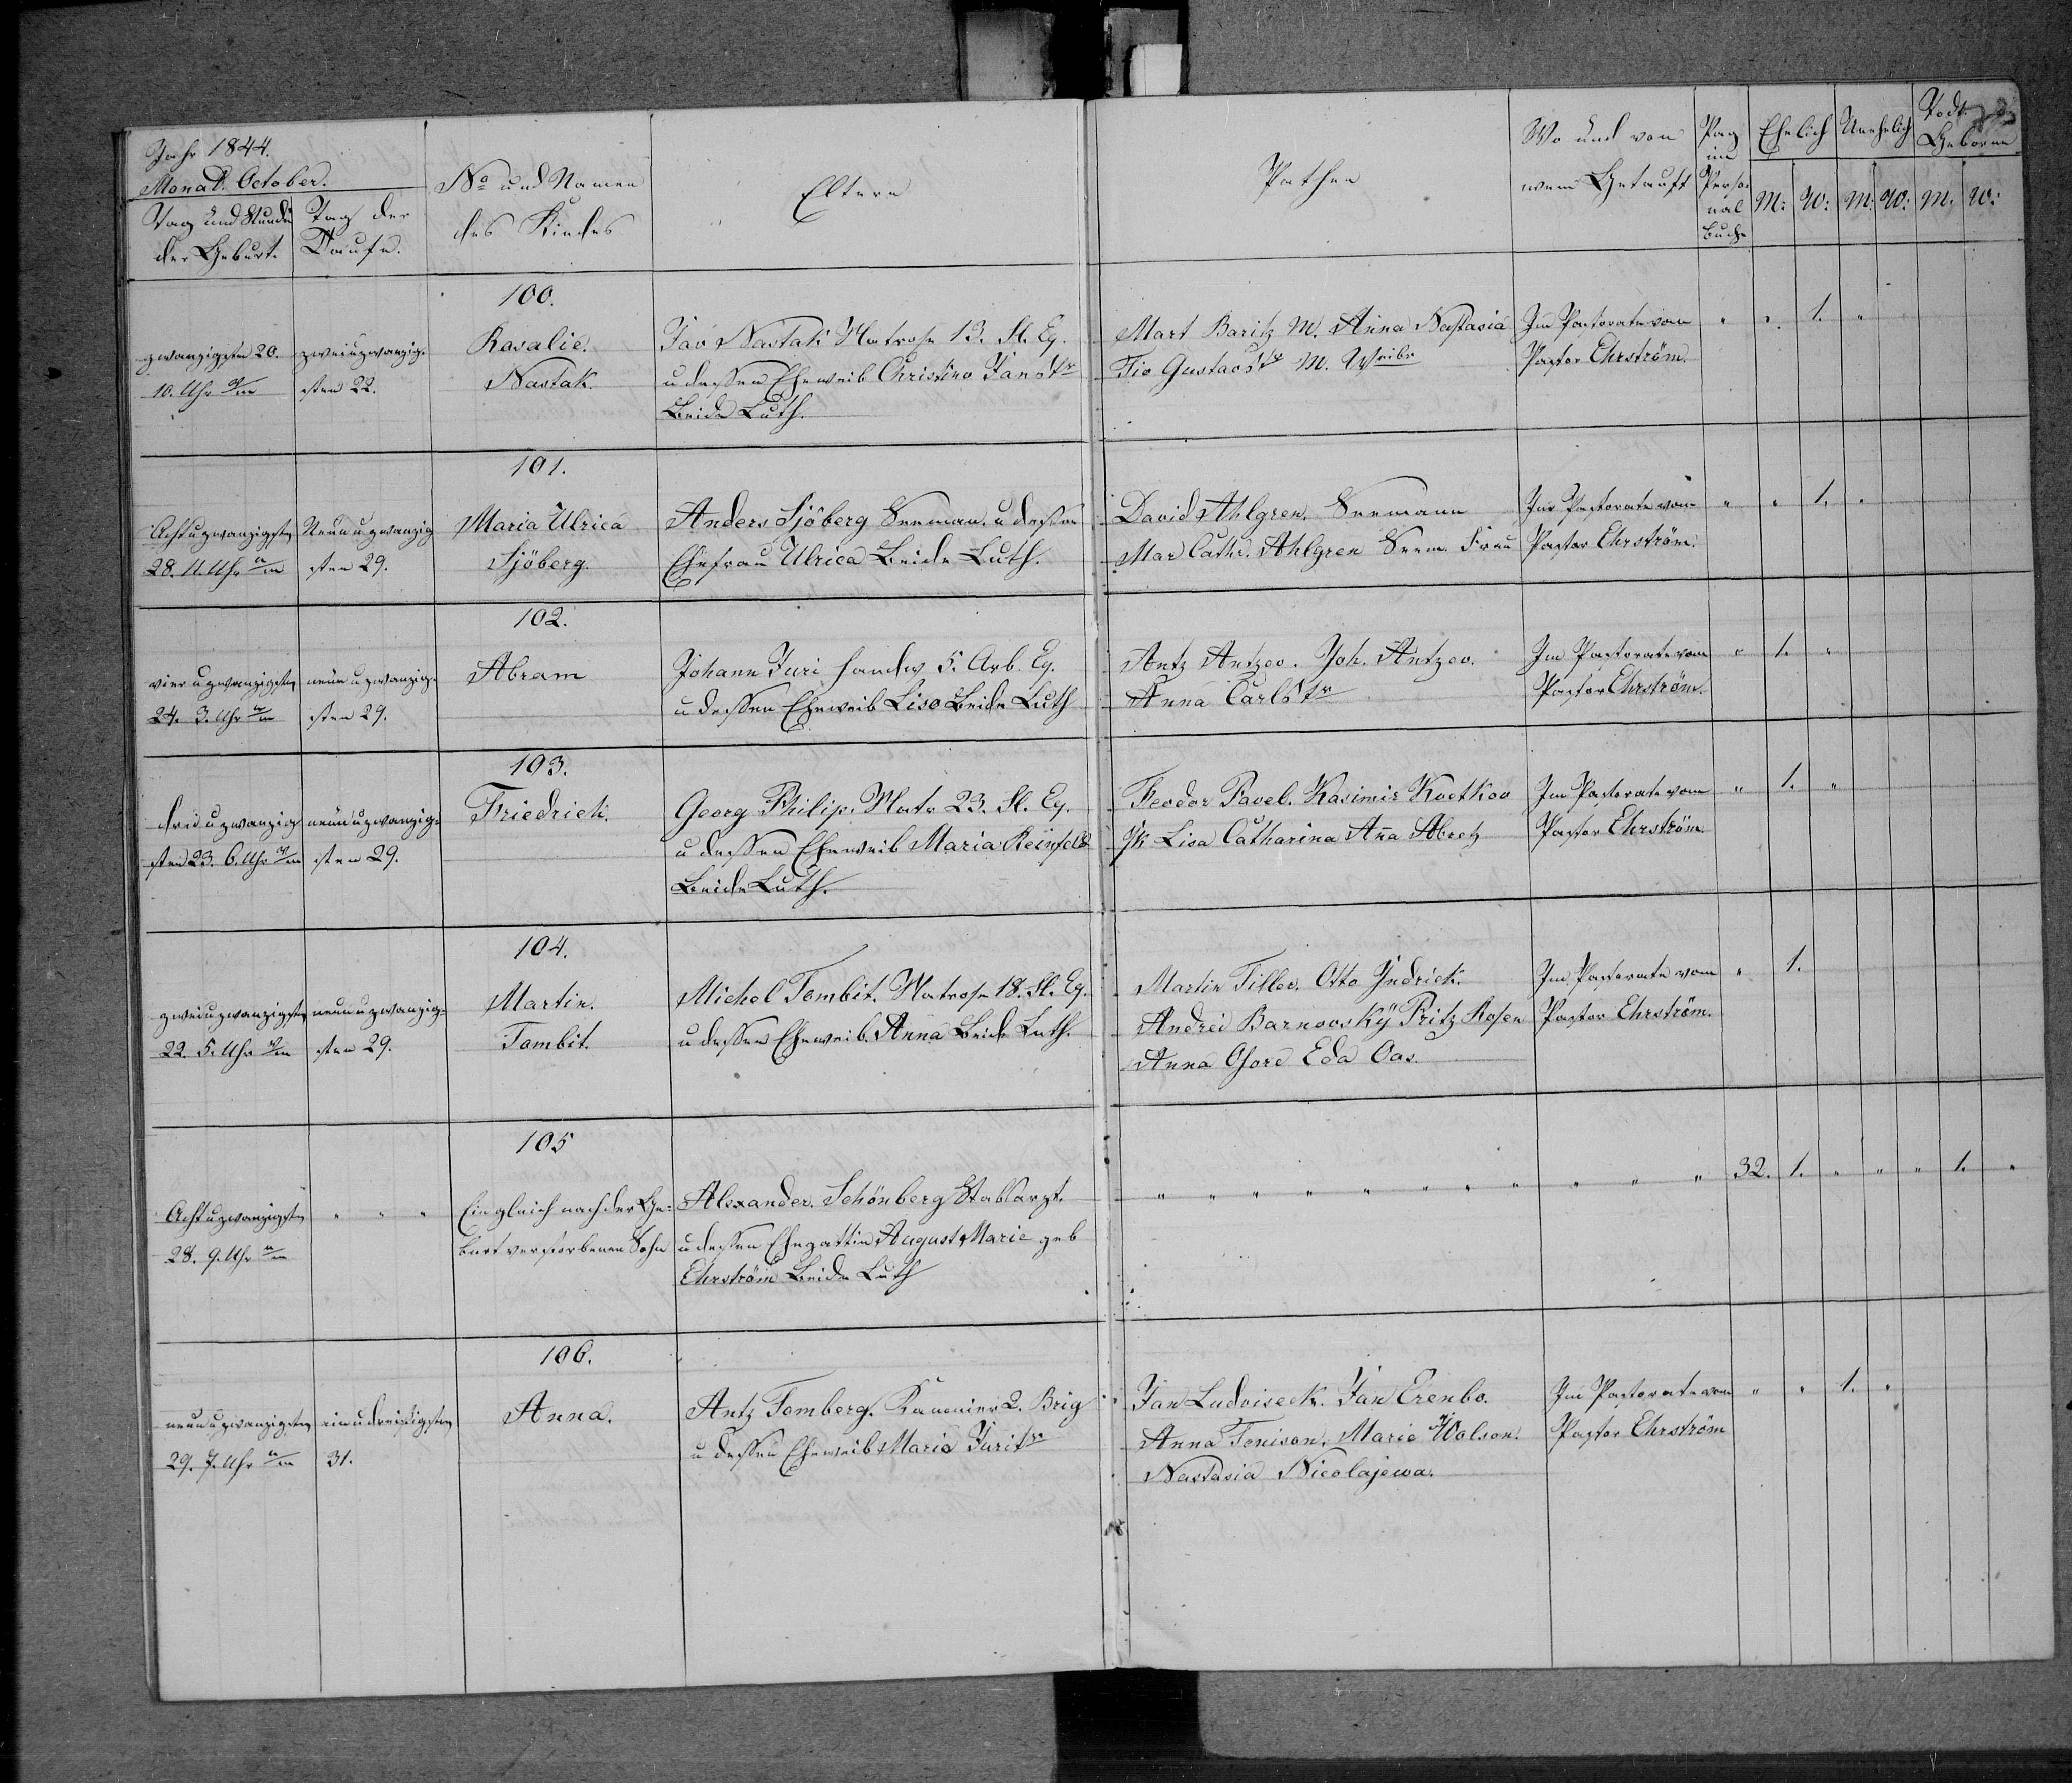 Jahr 1844.
Monat. October.
Tag und Stunde der Geburt.
Tag der Taufe.
No und Namen des Kindes
Eltern
Pathen
Wo und von wem Getauft
Pag im Perso- nal Buche
Ehelich
Unehelich
Todt Geborne
M: W: M: W: M. W:
100.
zwanzigsten 20.
10. Uhr
zweiuzwanzig-
sten 22.
Rosalie.
Nastak.
Nastak Matrose 13. Fl. Eq.
u dessen Eheweib Christino Janstr
Beide Luth.
Mart Baritz M. Anna Nastasia
Fio Gustavstr M. Weibr
Im Pastorate vom
Pastor Ehrström.
" " 1. "
101.
Achtuzwanzigsten
28. 11. Uhr
Neunuzwanzig
sten 29.
Maria Ulrica
Sjöberg.
Anders Sjöberg Seeman. u dessen
Ehefrau Ulrica Beide Luth.
David Ahlgren. Seemann
Mar Cathr. Ahlgren Seem. Frau
Im Pastorate vom
Pastor Ehrström.
" " 1. "
102.
vieruzwanzigsten
24. 3. Uhr
neunuzwanzig-
sten 29.
Abram
Johann Juri Handw 5. Arb. Eq.
u dessen Eheweib Liso Beide Luth
Antz Antzov. Joh. Antzov.
Anna Carlstr
Im Pastorate vom
Pastor Ehrström.
" 1. "
103.
dreiuzwanzig
sten 23. 6. Uhr
neunuzwanzig-
sten 29.
Friedrich.
Georg Philip. Matr 23. Fl. Eq.
u dessen Eheweib Maria Reinfeld
Beide Luth.
Feodor Pavel. Kasimir Koetkov
Lisa Catharina Anna Abretz
Im Pastorate vom
Pastor Ehrström.
" 1. "
104.
zweiuzwanzigsten
22. 5. Uhr
neunuzwanzig-
sten 29.
Martin.
Tombit.
Michel Tombit. Matrose 18. Fl. Eq.
u dessen Eheweib Anna Beide Luth.
Martin Tiller. Otto Indrick.
Andrei Barnovskÿ Pritz Rosen
Anna Eda Oas.
Im Pastorate vom
Pastor Ehrström.
" 1.
105
Achtuzwanzigsten
28. 9. Uhr
" " "
Ein gleich nach der Ge-
burt verstorbener Sohn
Alexander. Schönberg Stabsarzt.
u dessen Ehegattin August Marie geb
Ehrström Beide Luth
" " " " " " " " " " "
32. 1. " " " 1. "
106.
neunuzwanzigsten
29. 7. Uhr
einudreissigsten
31.
Anna.
Antz Tomberg. Kanonier 2. Brig
u dessen Eheweib Maria Juritr
Jan Ludviseck. Jan Erenbo.
Anna Tenison. Marie Wolson.
Nastasia Nicolajewa.
Im Pastorate vom
Pastor Ehrström
" " 1. "